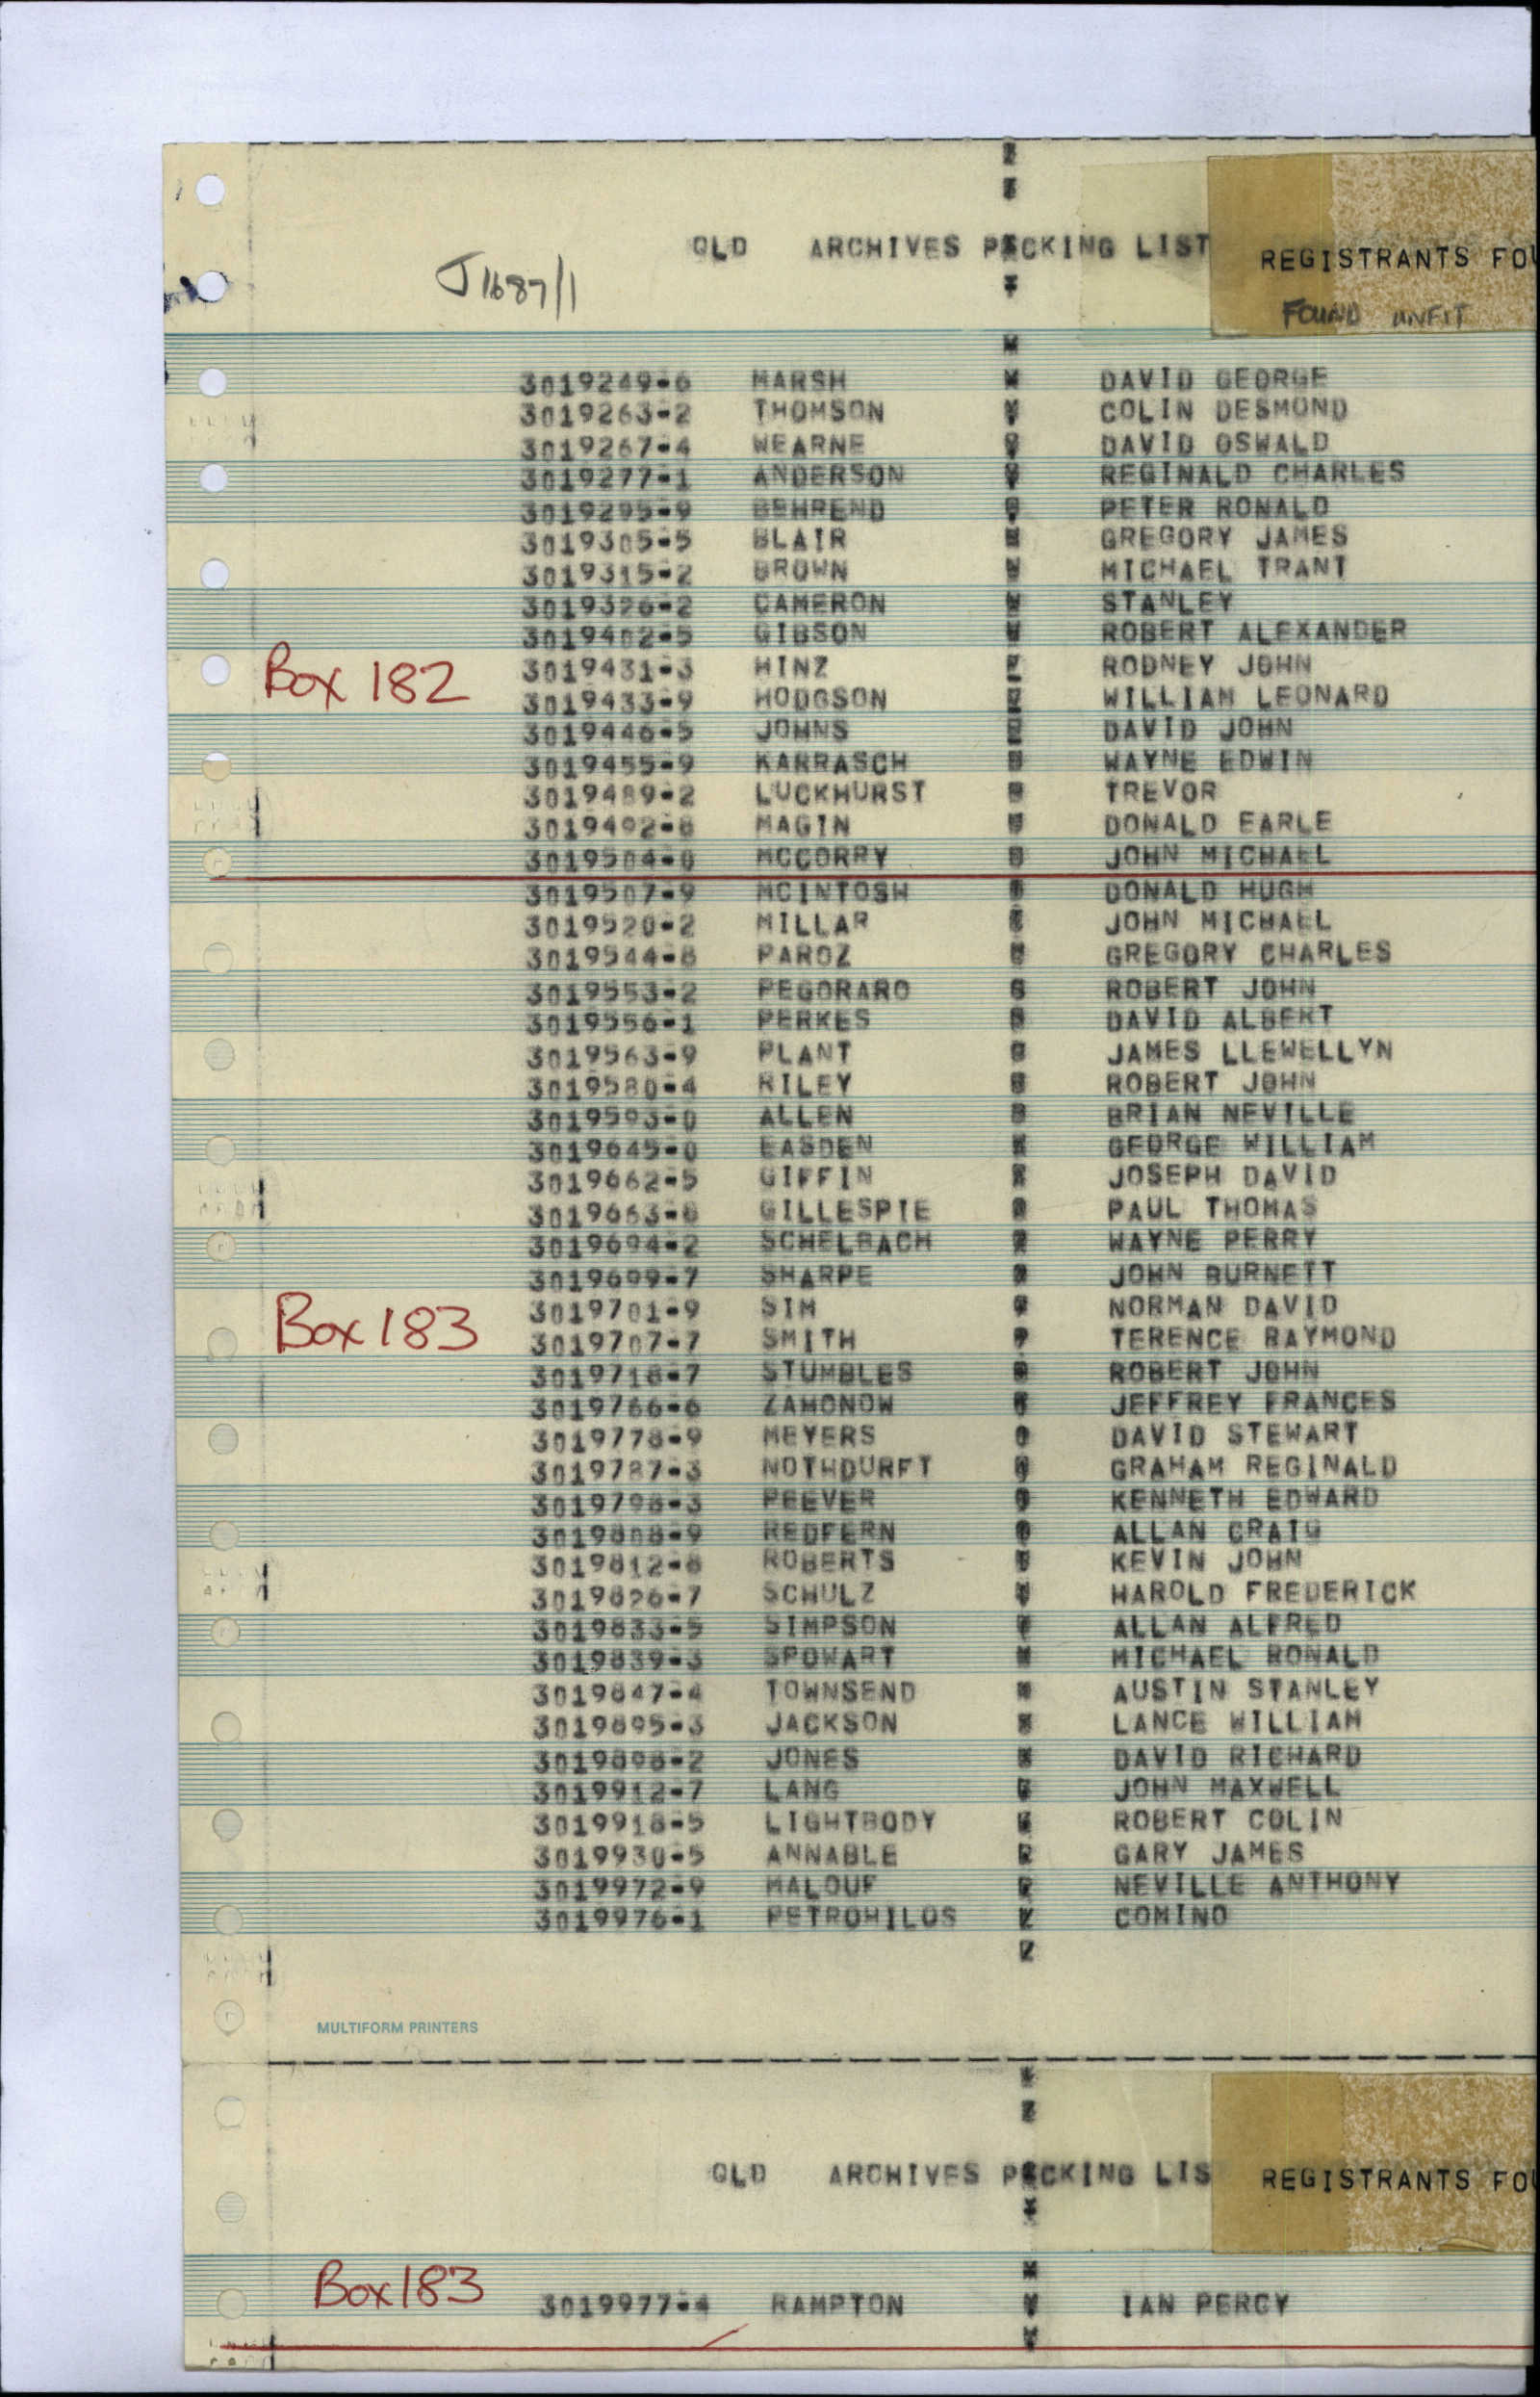 QLD ARCHIVES PACKING LIST REGISTRANTS FOU
J1687/1
FOUND UNFIT
3019249-6 MARSH DAVID GEORGE
3019263-2 THOMSON COLIN DESMOND
3019267-4 WEARNE DAVID OSWALD
3019277-1 ANDERSON REGINALD CHARLES
3019295-9 BEHREND PETER RONALD
3019305-5 BLAIR GREGORY JAMES
3019315-2 BROWN MICHAEL TRANT
3019326-2 CAMERON STANLEY
3019402-5 GIBSON ROBERT ALEXANDER
Box 182
3019431-3 HINZ RODNEY JOHN
3019433-9 HODGSON WILLIAM LEONARD
3019446-5 JOHNS DAVID JOHN
3019455-9 KARRASCH WAYNE EDWIN
3019489-2 LUCKHURST TREVOR
3019492-8 MAGIN DONALD EARLE
3019504-0 MCCORRY JOHN MICHAEL
3019507-9 MCINTOSH DONALD HUGH
3019520-2 MILLAR JOHN MICHAEL
3019544-8 PAROZ GREGORY CHARLES
3019553-2 PEGORARO ROBERT JOHN
3019556-1 PERKES DAVID ALBERT
3019563-9 PLANT JAMES LLEWELLYN
3019580-4 RILEY ROBERT JOHN
3019593-0 ALLEN BRIAN NEVILLE
3019645-0 EASDEN GEORGE WILLIAM
3019662-5 GIFFIN JOSEPH DAVID
3019663-8 GILLESPIE PAUL THOMAS
3019694-2 SCHELBACH WAYNE PERRY
3019699-7 SHARPE JOHN BURNETT
3019701-9 SIM NORMAN DAVID
Box 183
3019707-7 SMITH TERENCE RAYMOND
3019718-7 STUMBLES ROBERT JOHN
3019766-6 ZAMONOW JEFFREY FRANCES
3019778-9 MEYERS DAVID STEWART
3019787-3 NOTHDURFT GRAHAM REGINALD
3019798-3 PEEVER KENNETH EDWARD
3019808-9 REDFERN ALLAN CRAIG
3019812-8 ROBERTS KEVIN JOHN
3019826-7 SCHULZ HAROLD FREDERICK
3019833-5 SIMPSON ALLAN ALFRED
3019839-3 SPOWART MICHAEL RONALD
3019847-4 TOWNSEND AUSTIN STANLEY
3019895-3 JACKSON LANCE WILLIAM
3019898-2 JONES DAVID RICHARD
3019912-7 LANG JOHN MAXWELL
3019918-5 LIGHTBODY ROBERT COLIN
3019930-5 ANNABLE GARY JAMES
3019972-9 MALOUF NEVILLE ANTHONY
3019976-1 PETROHILOS COMINO
MULTIFORM PRINTERS
QLD ARCHIVES PACKING LIS REGISTRANTS FOU
Box 183
3019977-4 RAMPTON IAN PERCY